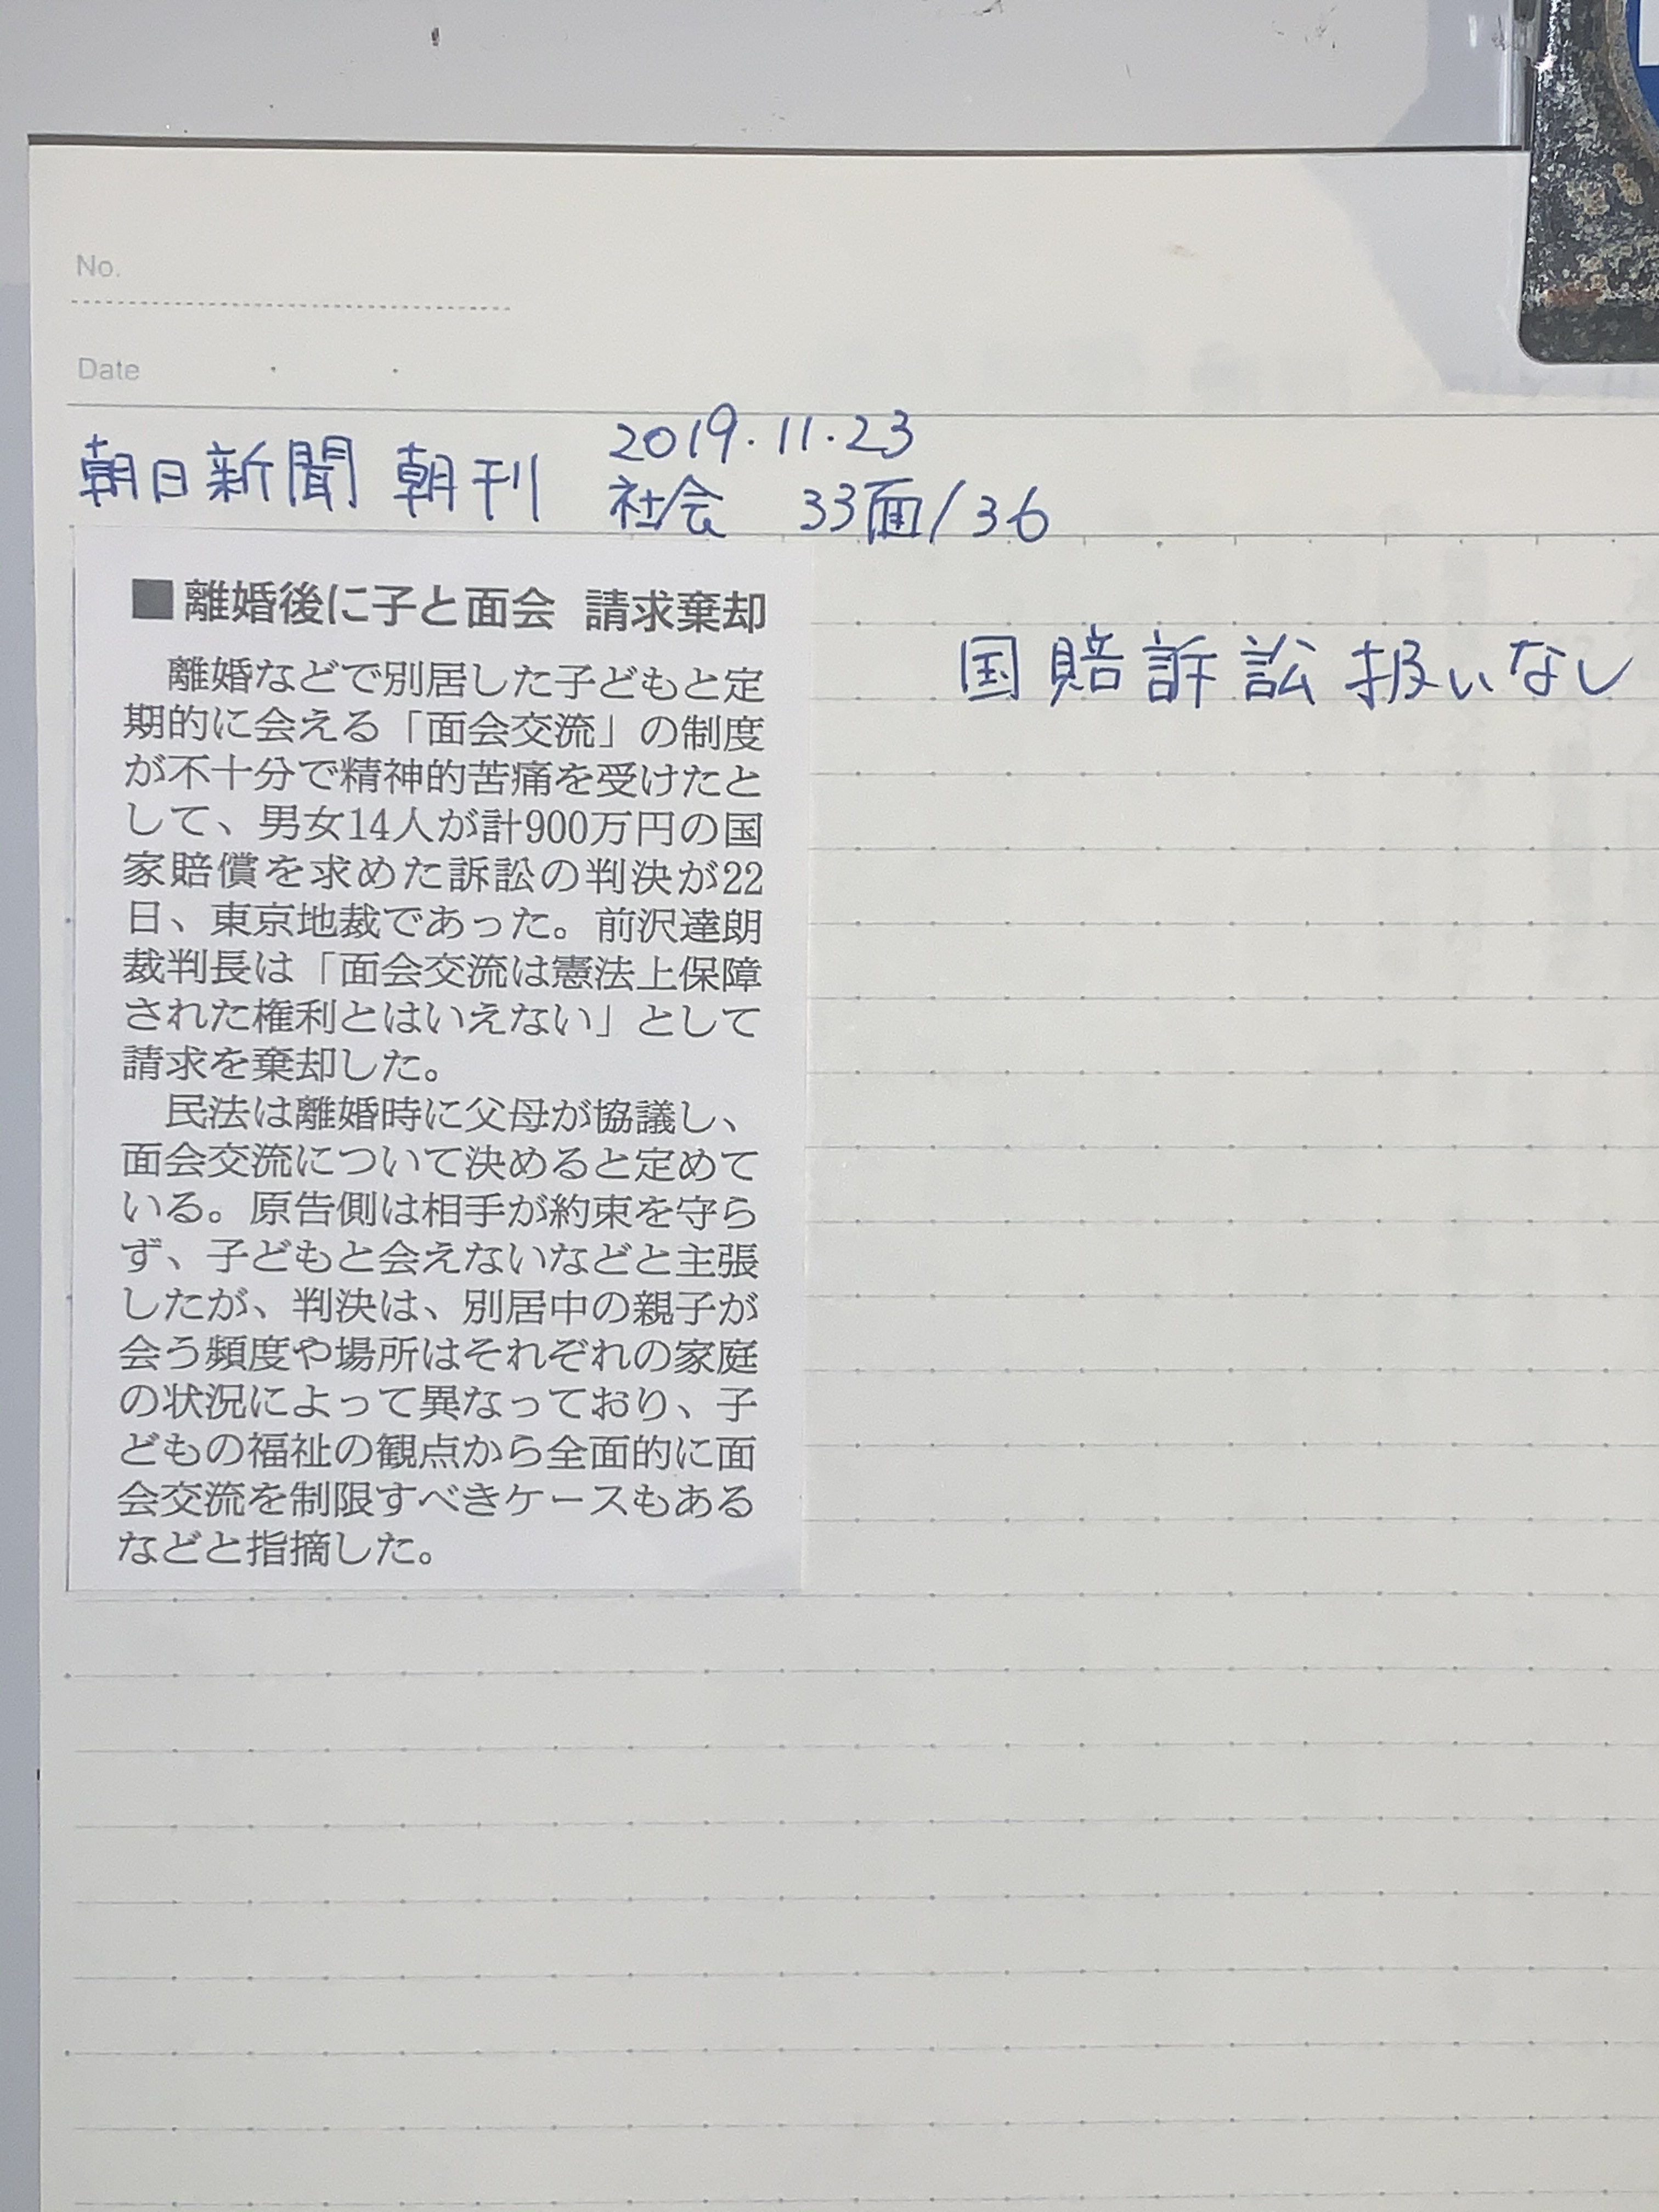 No.
Date
朝日新聞 朝刊 2019.11.23
社会 33面/36
■離婚後に子と面会 請求棄却
離婚などで別居した子どもと定
期的に会える「面会交流」の制度
が不十分で精神的苦痛を受けたと
して、男女14人が計900万円の国
家賠償を求めた訴訟の判決が22
日、東京地裁であった。前沢達朗
裁判長は「面会交流は憲法上保障
された権利とはいえない」として
請求を棄却した。
民法は離婚時に父母が協議し、
面会交流について決めると定めて
いる。原告側は相手が約束を守ら
ず、子どもと会えないなどと主張
したが、判決は、別居中の親子が
会う頻度や場所はそれぞれの家庭
の状況によって異なっており、子
どもの福祉の観点から全面的に面
会交流を制限すべきケースもある
などと指摘した。
国賠訴訟扱いなし